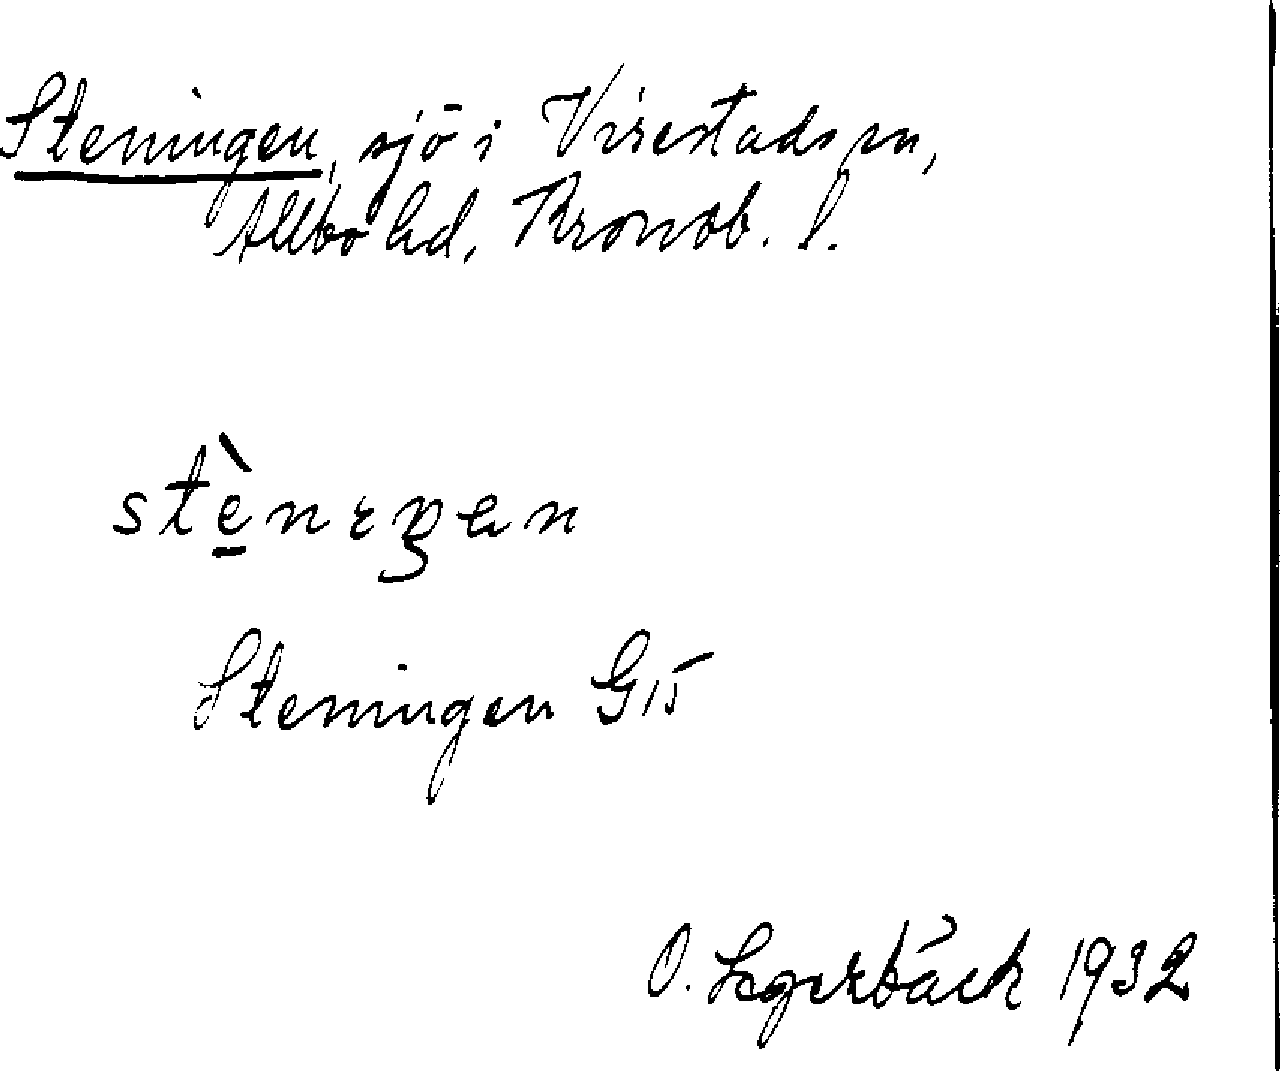 Steningen, sjö i Virestads sn,
Allbo hd, Kronob. l.
stè̠nɪŋən
Steningen G15
O. Lagerbäck 1932